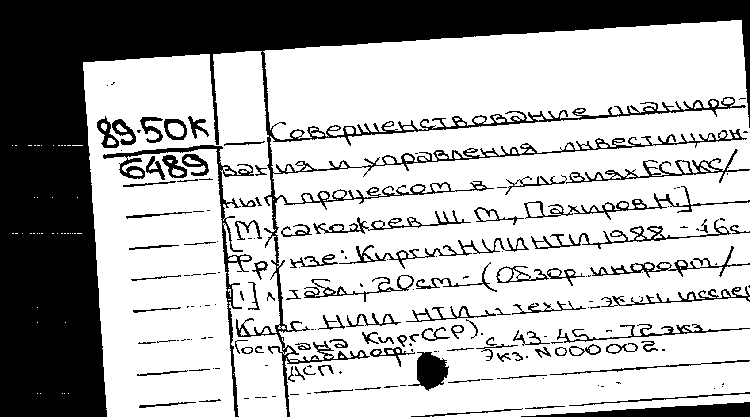 89-50К
6489
Совершенствование планиро-
вания и управления инвестицион-
ным процессом в условиях ЕСПКС/
[Мусакожоев Ш. М., Пахиров Н.]. -
Фрунзе: КиргизНИИНТИ, 1988. - 46с.
[1] л. табл.; 20см. - (Обзор. информ. /
Кирг. НИИ НТИ и техн.-экон. исслед.
Госплана КиргССР).
Библиогр.: с. 43-45. - 72 экз.
ДСП. Экз. N000002.